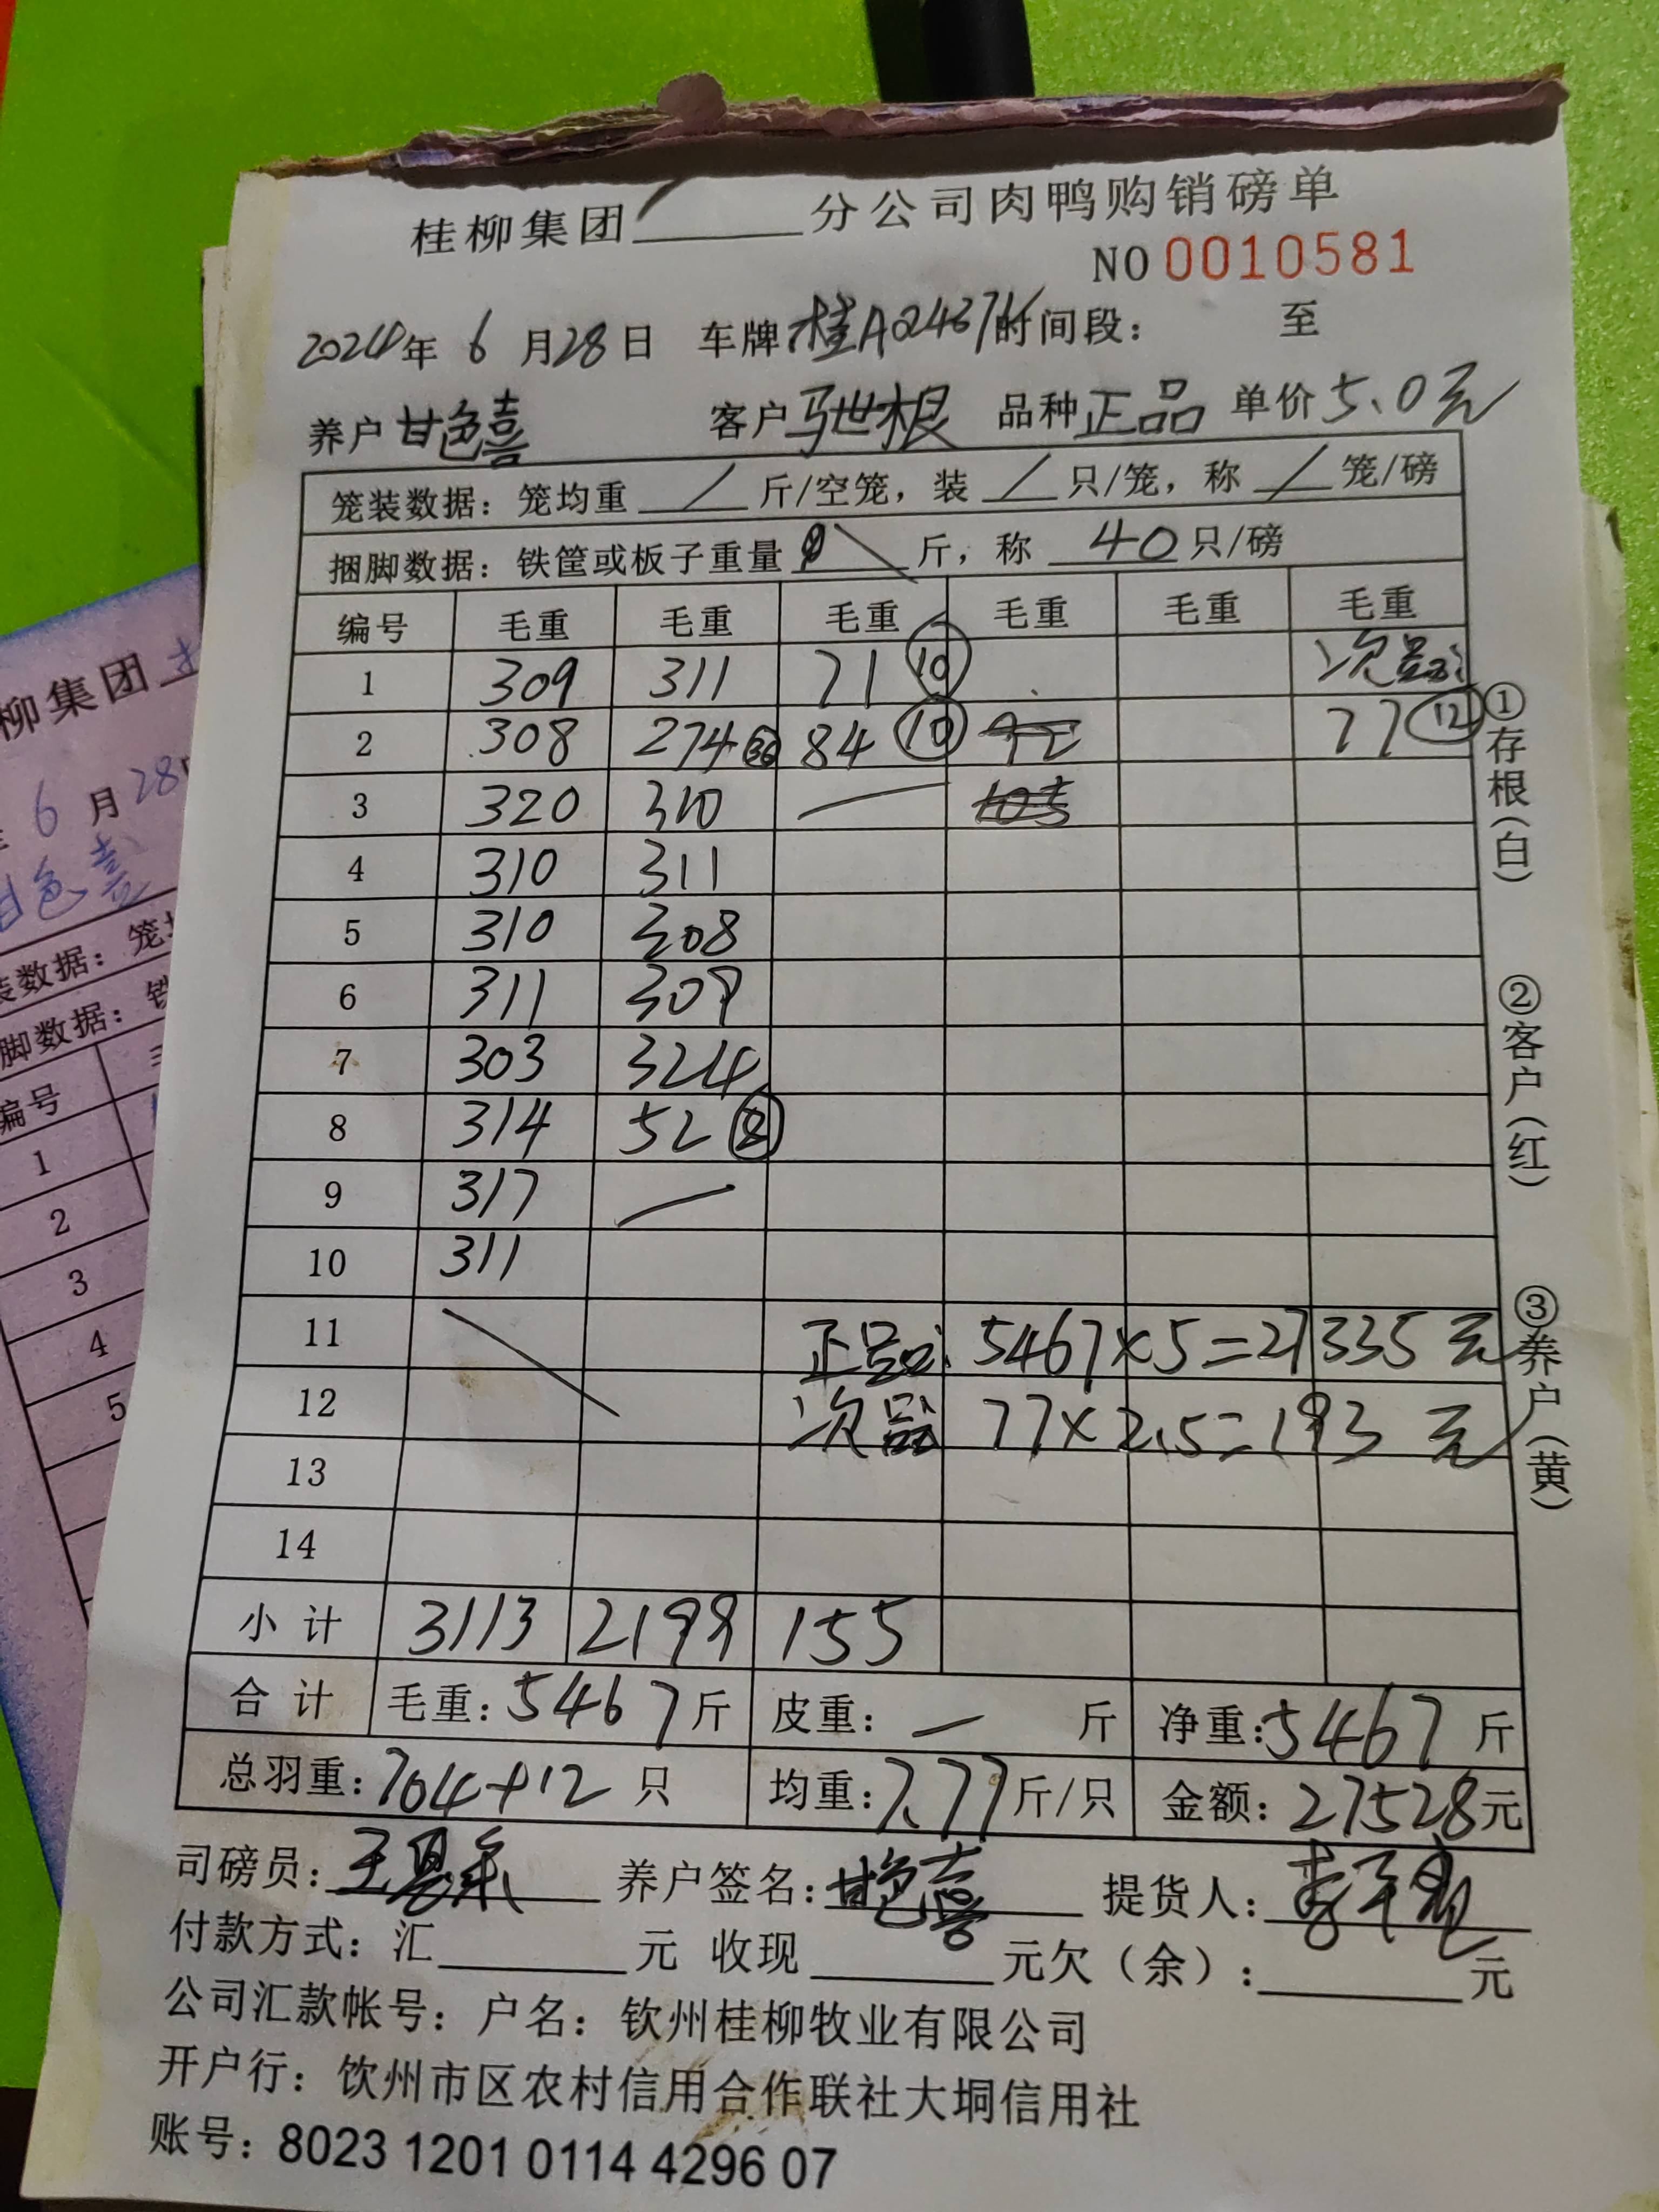 桂柳集团 分公司肉鸭购销磅单
NO 0010581
2024年 6 月28日 车牌 时间段： 至
养户 甘色喜 客户 世根 品种 正品 单价 5.0元
笼装数据：笼均重 / 斤/空笼，装 / 只/笼，称 / 笼/磅
捆脚数据：铁筐或板子重量 斤，称 40 只/磅
编号 毛重 毛重 毛重 毛重 毛重 毛重
1 309 311 71 ⑩ 次品：
2 308 274 ㊱ 84 ⑩ 77 ⑫
3 320 310 —
4 310 311
5 310 308
6 311 309
7 303 324
8 314 52
9 317 —
10 311
11 正品：5467×5=27335元
12 次品 77×2.5=193 元
13
14
小 计 3113 2199 155
合 计 毛重：5467斤 皮重： — 斤 净重：5467 斤
总羽重：704+12 只 均重：7.77斤/只 金额：27528元
司磅员： 养户签名：甘色喜 提货人：
付款方式：汇 元 收现 元欠（余）： 元
公司汇款帐号：户名：钦州桂柳牧业有限公司
开户行：钦州市区农村信用合作联社大垌信用社
账号：8023 1201 0114 4296 07
①存根（白）
②客户（红）
③养户（黄）
柳集团
6 月 28
甘色喜
装数据：笼
脚数据：
编号
1
2
3
4
5